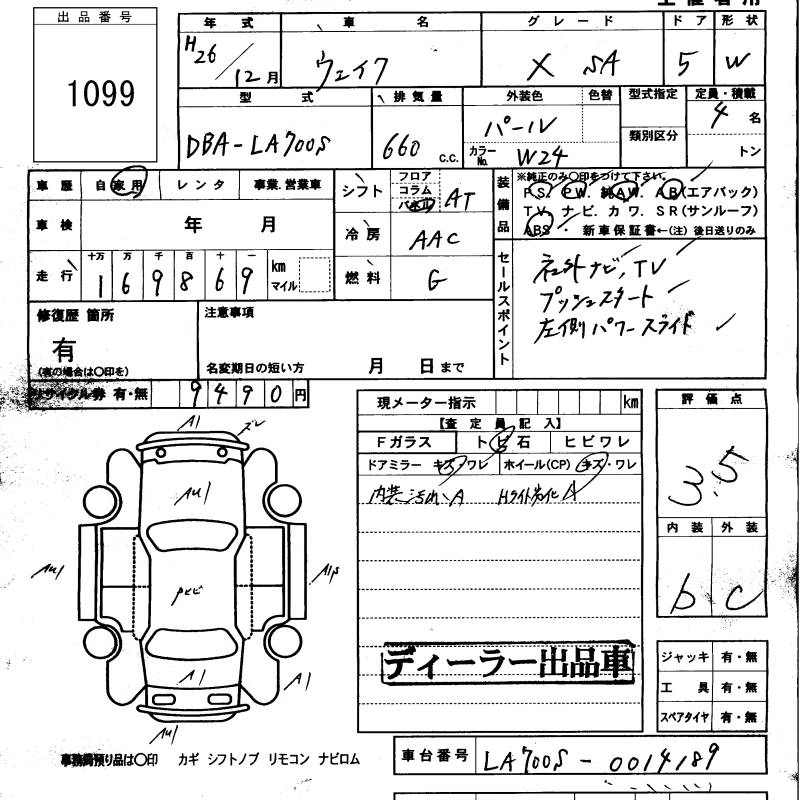 主催者用
出品番号
1099
年式 車名 グレード ドア 形状
H26/12月 ウェイク X SA 5 W
型式 排気量 外装色 色替 型式指定 定員・積載
DBA-LA700S 660 c.c. パール 類別区分 4名
カラーNo. W24 トン
車歴 自家用 レンタ 事業.営業車
シフト フロア コラム パネル AT
装備品 ※純正のみ○印をつけて下さい。
PS. PW. 純AW. AB(エアバック)
TV. ナビ. カワ. SR(サンルーフ)
ABS 新車保証書←(注)後日送りのみ
車検 年 月
冷房 AAC
走行 十万 万 千 百 十 一 km マイル
169869
燃料 G
セールスポイント
社外ナビ,TV
プッシュスタート
左側パワースライド
修復歴 箇所
有
(有の場合は○印を)
注意事項
名変期日の短い方 月 日まで
リサイクル券 有・無 9490円
現メーター指示 km
【査定員記入】
Fガラス トビ石 ヒビワレ
ドアミラー キズ・ワレ ホイール(CP) キズ・ワレ
内装汚れA Hライト劣化A
評価点
3.5
内装 外装
b C
A1
ズレ
AU1
AU1
Pトビ
A1
A1
AU1
ディーラー出品車
ジャッキ 有・無
工具 有・無
スペアタイヤ 有・無
事務局預り品は○印 カギ シフトノブ リモコン ナビロム
車台番号 LA700S-0014189